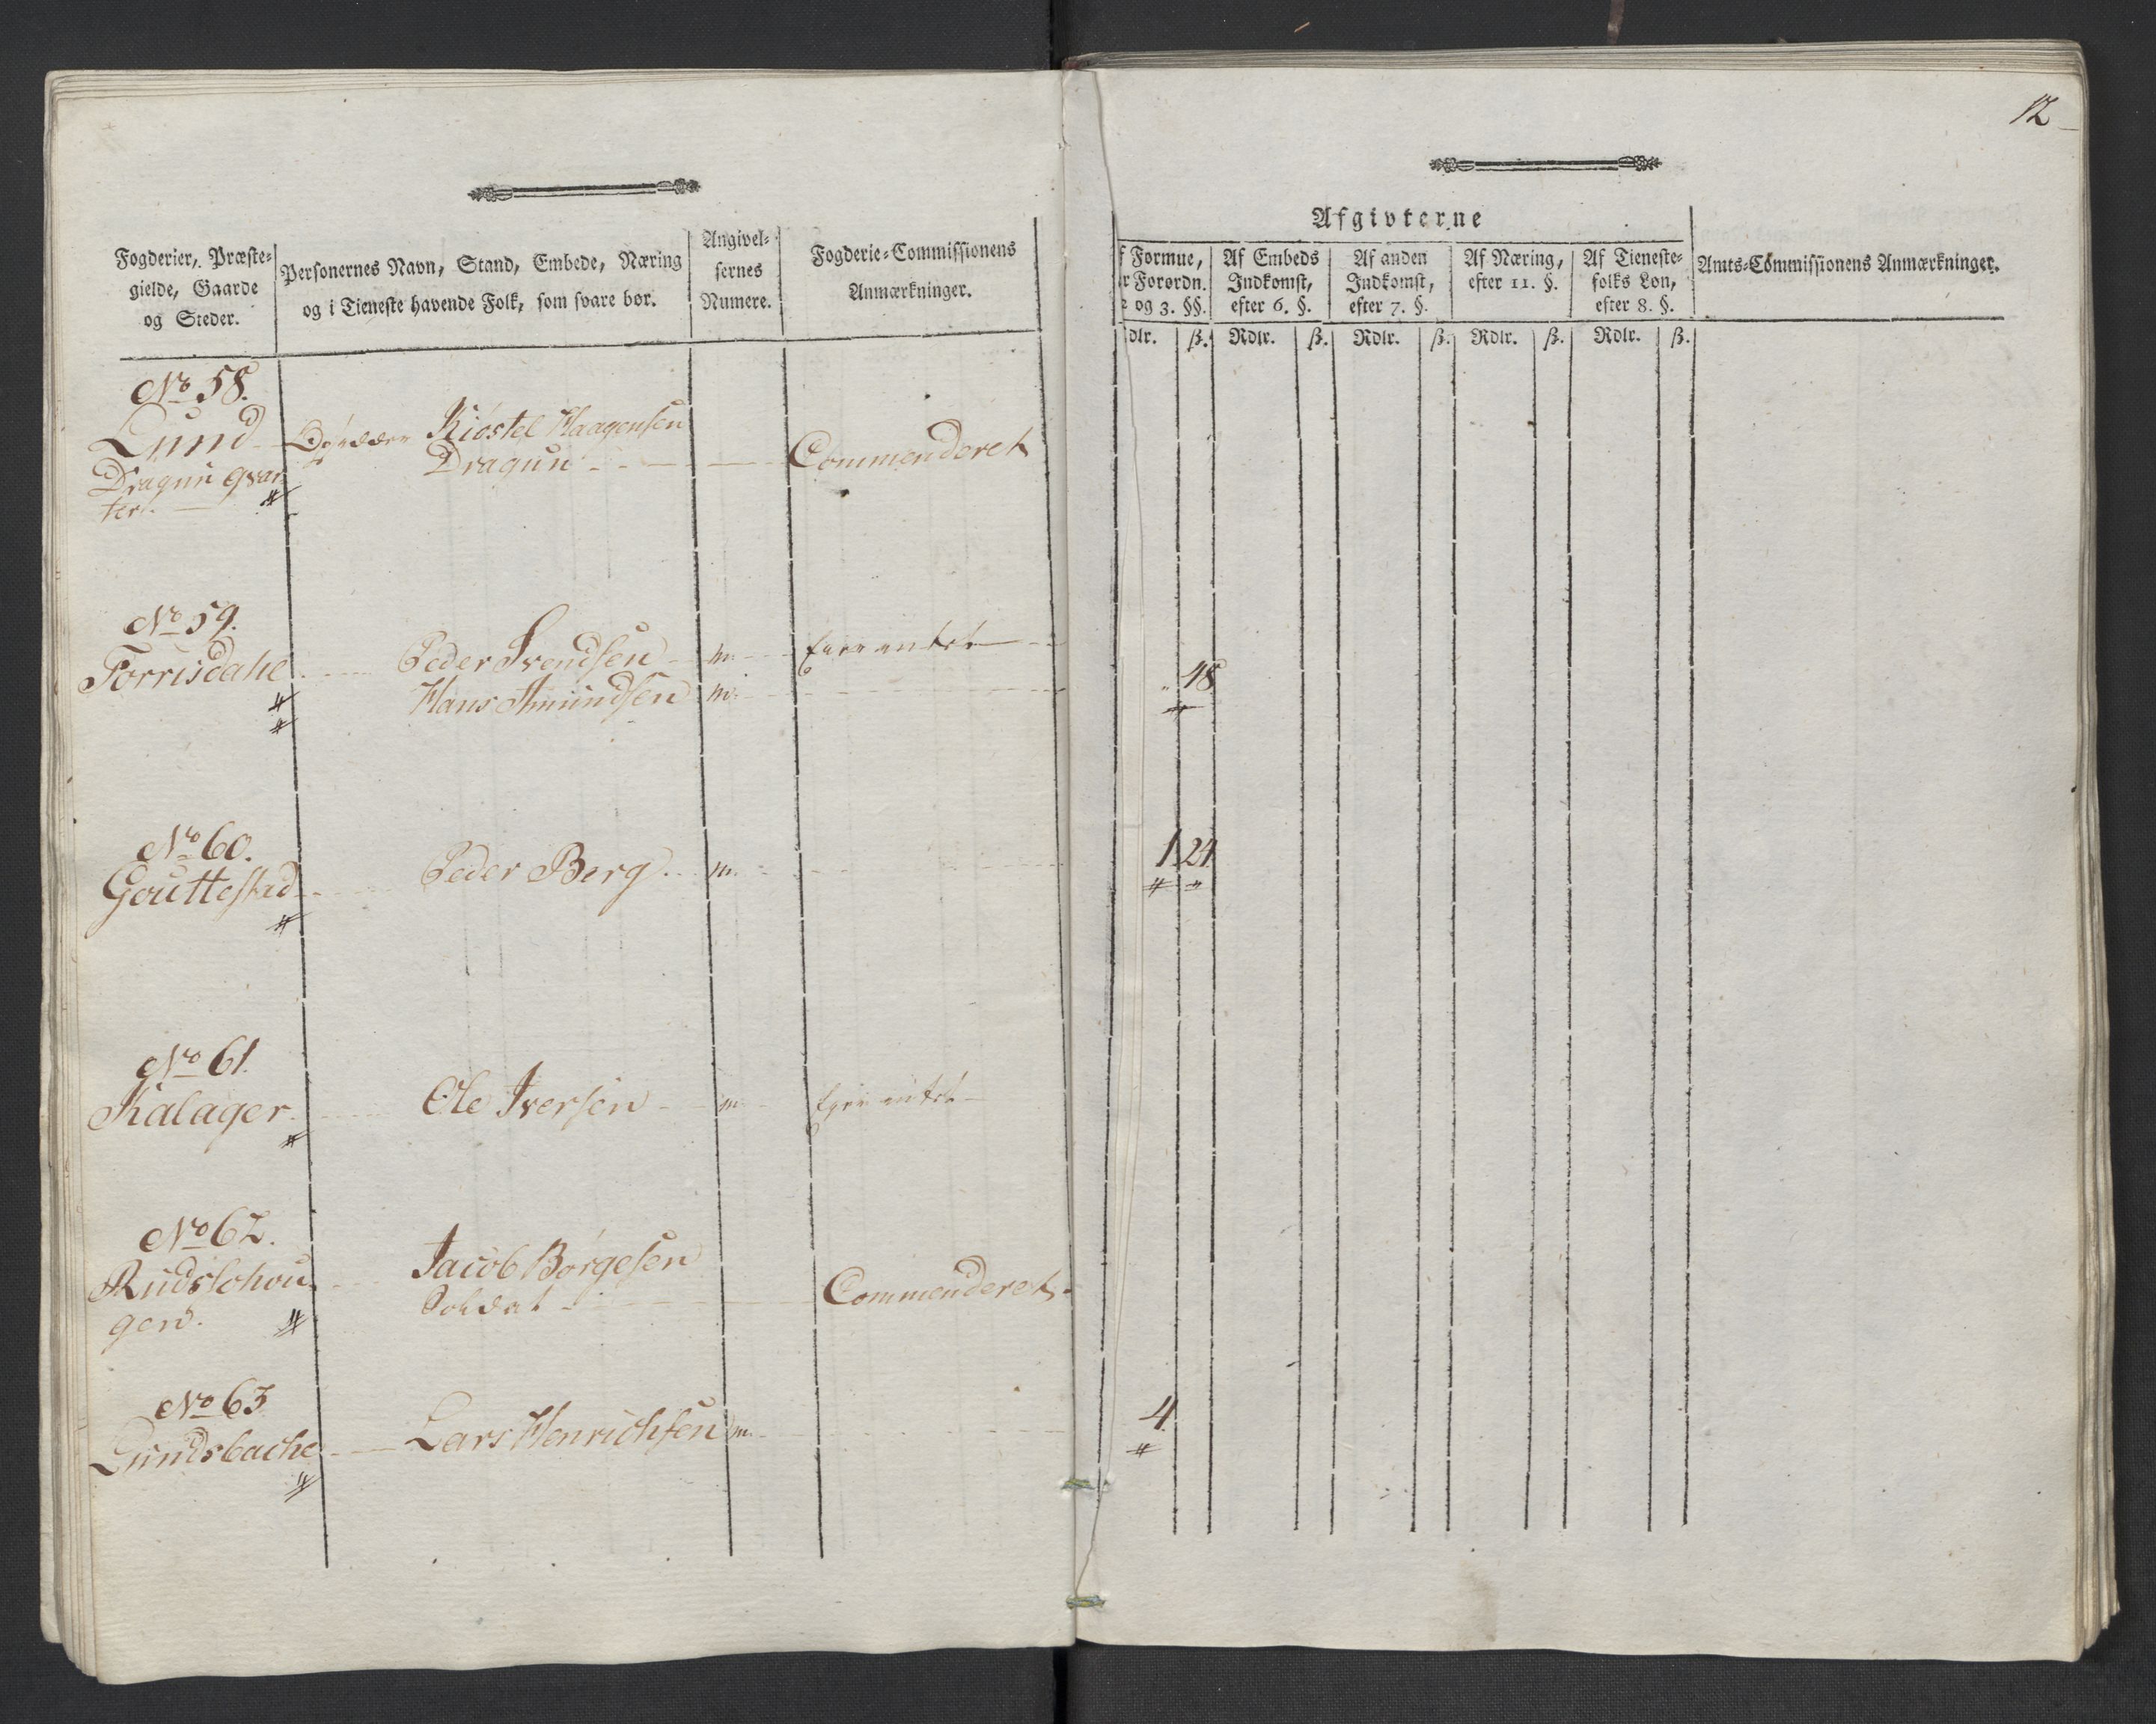 12
Fogderier, Præste-
gielde, Gaarde
og Steder.
Personernes Navn, Stand, Embede, Næring
og i Tieneste havende Folk, som svare bør.
Angivel-
sernes
Numere.
Fogderie-Commissionens
Anmærkninger.
Afgivterne
f Formue,
r Forordn.
2 og 3. §§.
Af Embeds
Indkomst,
efter 6. §.
Af anden
Indkomst,
efter 7. §.
Af Næring,
efter 11. §.
Af Tieneste-
folks Løn,
efter 8. §.
Amts-Commissionens Anmærkninger.
dlr. ß. Rdlr. ß. Rdlr. ß. Rdlr. ß. Rdlr. ß.
No 58.
Lund
Dragun qvar
ter.
Kiøstel Haagensen
Dragun
Commenderet
No 59.
Torrisdahl
Peder Svendsen m.
Hans Amundsen m. 48
No 60.
Gouttestad Peder Berg. m. 1 24
No 61.
Kalager Ole Iversen m.
No 62.
Rudslohou
gen.
Jacob Børgesen
Soldat Commenderet.
No 63
Lundsbache Lars Henrichsen m. 4